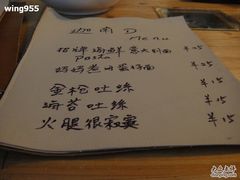 wing955
南 D
Menu
招牌海鲜意大利面 ¥25
Pasta
妈妈煮的蛋炒面 ¥25
金枪吐丝 ¥15
海苔吐丝 ¥15
火腿很寂寞 ¥15